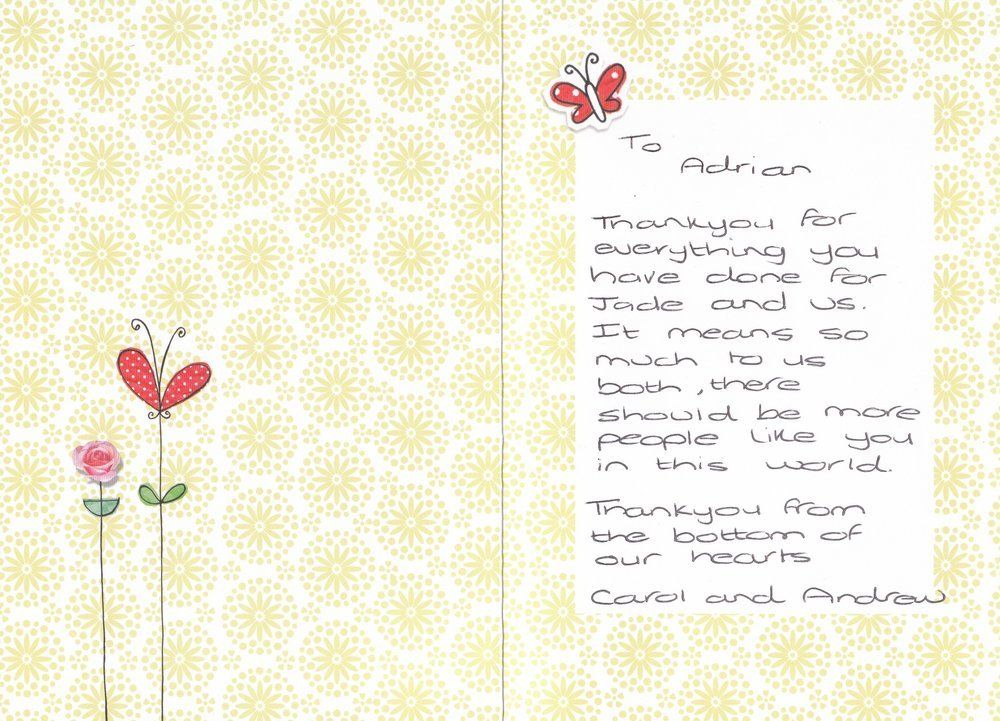 To
Adrian
Thankyou for
everything you
have done for
Jade and us.
It means so
much to us
both, there
should be more
people like you
in this world.
Thankyou from
the bottom of
our hearts
Carol and Andrew